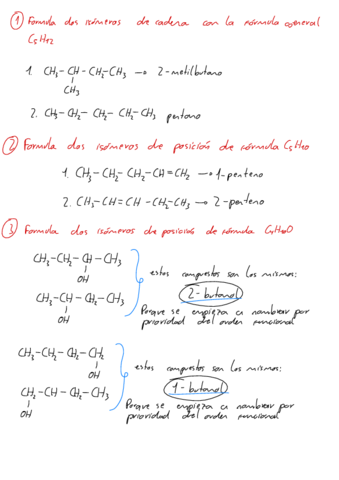 1 Formula dos isómeros de cadena con la fórmula general
C5H12
1. CH3-CH-CH2-CH3 → 2-metilbutano
CH3
2. CH3-CH2-CH2-CH2-CH3 pentano
2 Formula dos isómeros de posición de fórmula C5H10
1. CH3-CH2-CH2-CH=CH2 → 1-penteno
2. CH3-CH=CH-CH2-CH3 → 2-penteno
3 Formula dos isómeros de posición de fórmula
CH3-CH2-CH-CH3
OH
estos compuestos son los mismos:
CH3-CH-CH2-CH3
OH
2-butanol
Porque se empieza a nombrar por
prioridad del orden funcional
CH3-CH2-CH2-CH2
OH
estos compuestos son los mismos:
CH2-CH-CH2-CH3
OH
1-butanol
Porque se empieza a nombrar por
prioridad del orden funcional